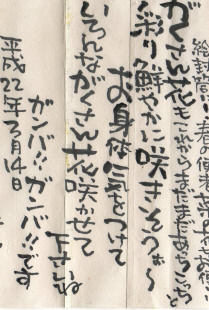 絵封筒に春の使者菜の花が
がくさん花もこれからまだまだあちこちと
彩り鮮やかに咲きそうぉ〜
お身体に気をつけて
いろんながくさん花咲かせて
下さいね
ガンバ!!ガンバ!!です
平成22年3月14日